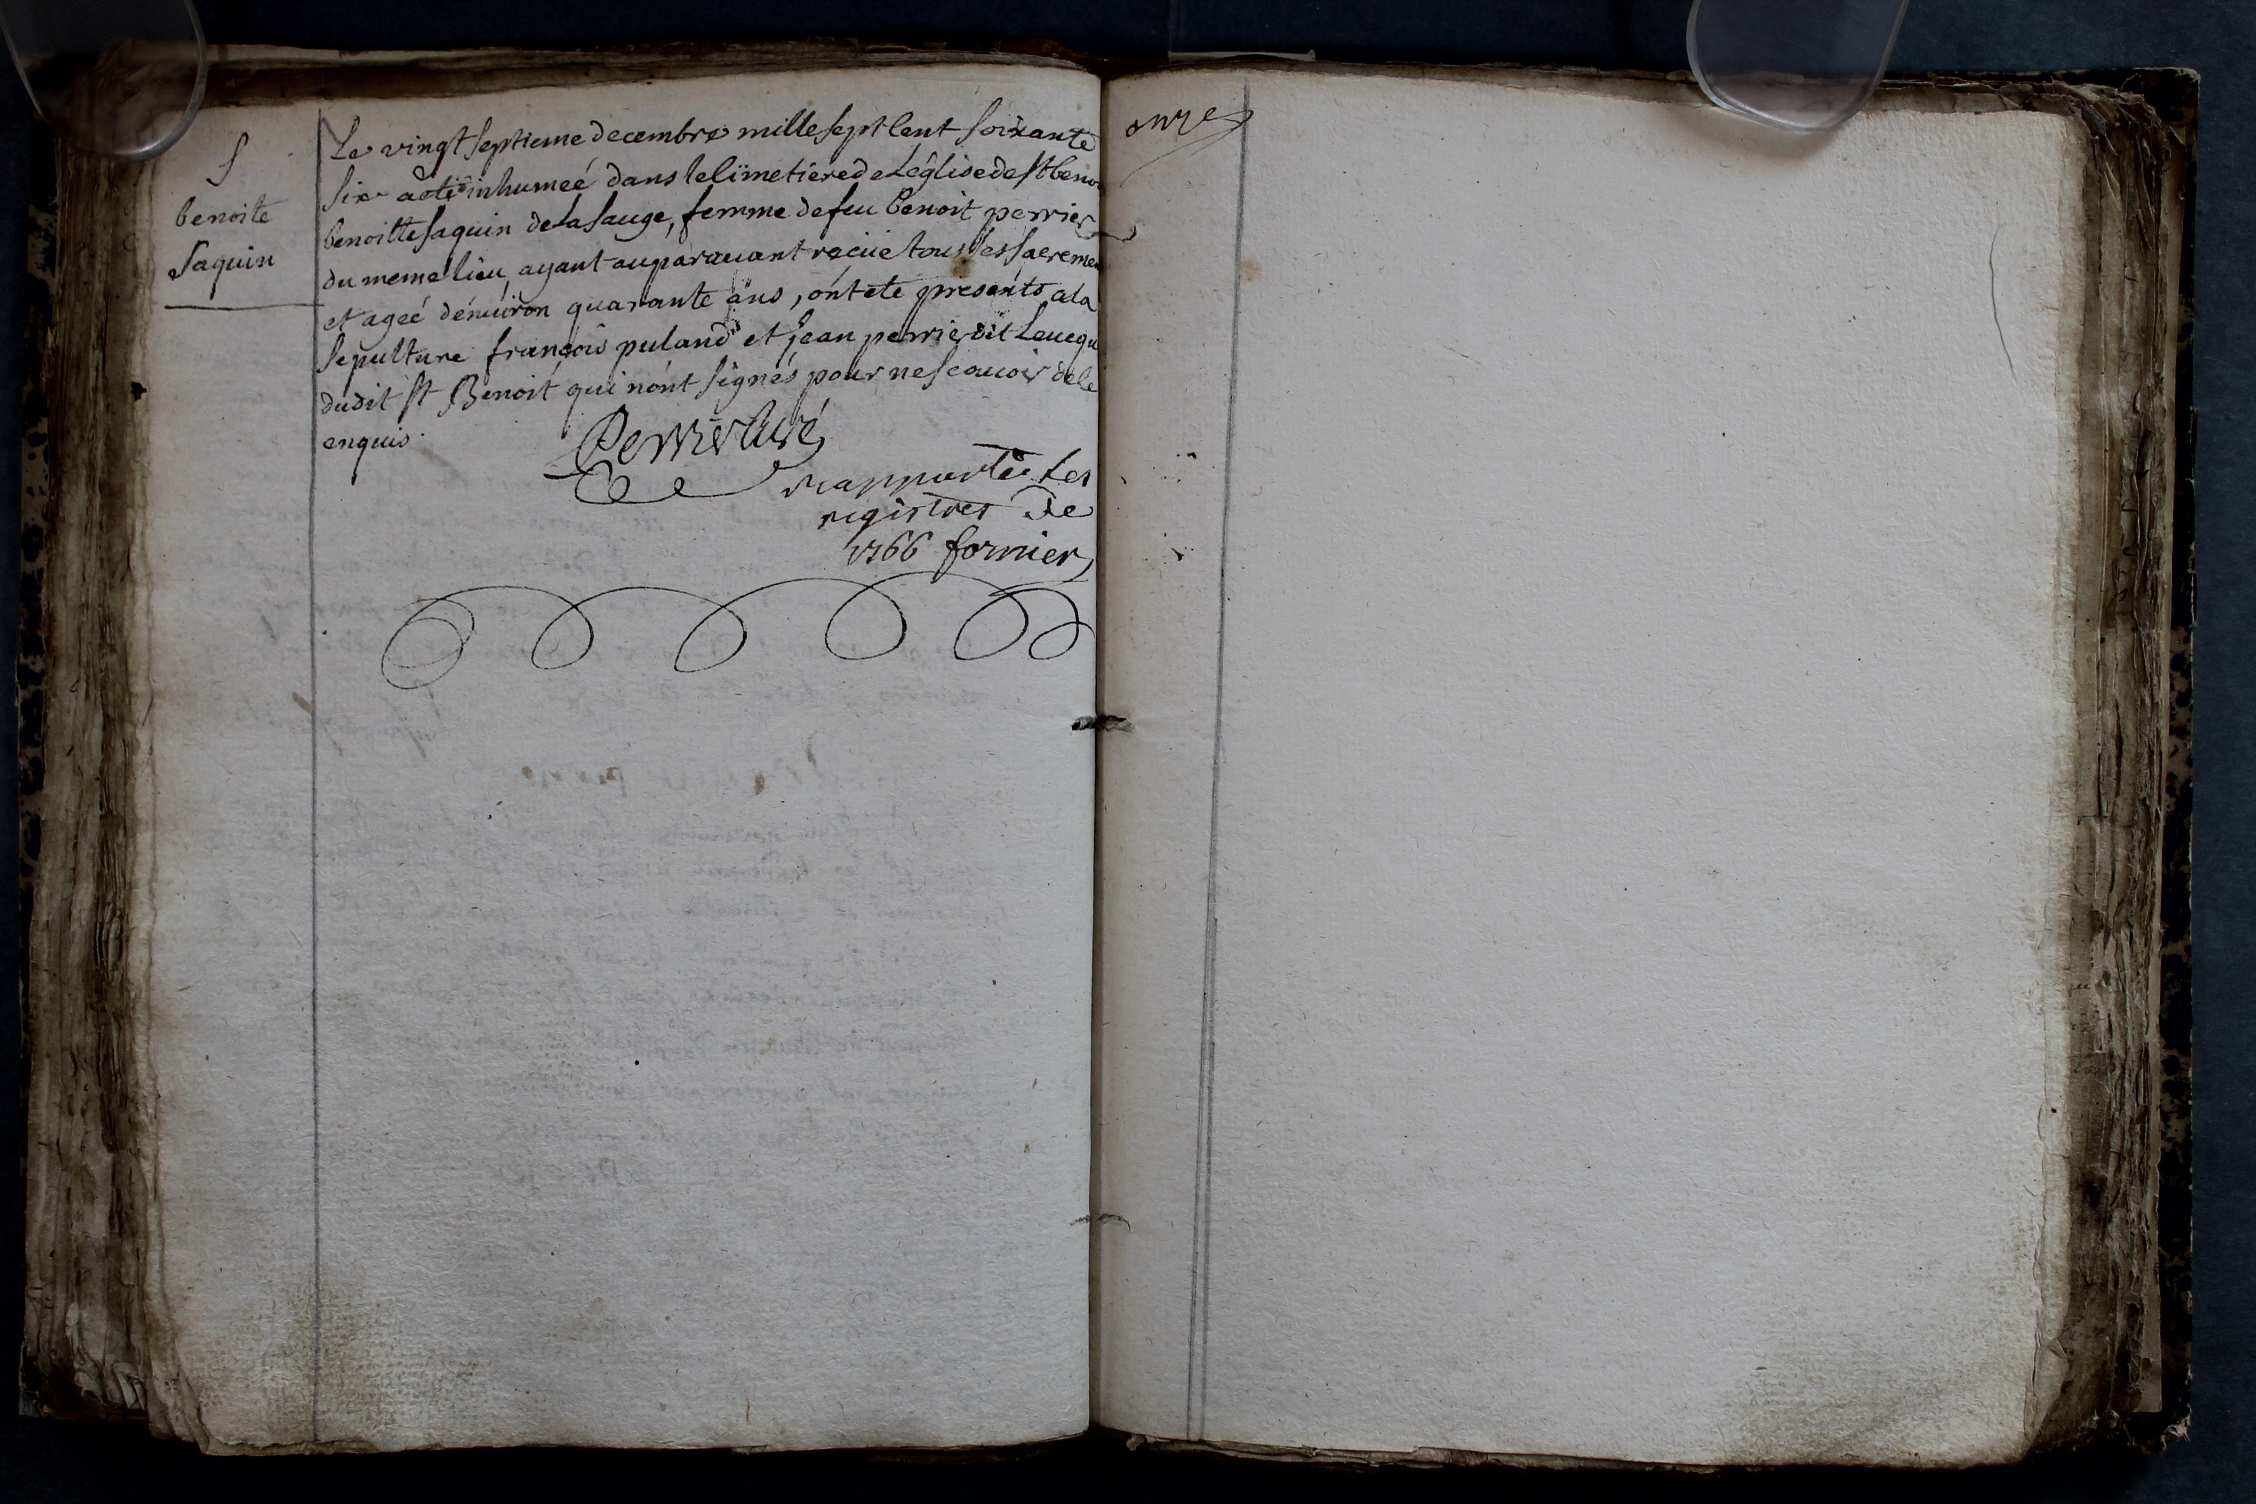 S
benoite
Saquin
Le vingt septieme decembre mille sept Cent Soixante
Six a eté inhumeé dans le Cimetiere de Léglise de St benoi
benoitte saquin de la sauge, femme de feu benoit perrier
du meme lieu, ayant auparavant recüe tous les sacremen
et ageé d'enuiron quarante ans, ont ete presents a la
sepulture françois puland et jean perrier dit
dudit St Benoit qui n'ont signés pour ne scauoir de ce
enquis.
Perrier Curé
rapporté Les
registres De
1766 fornier
onze